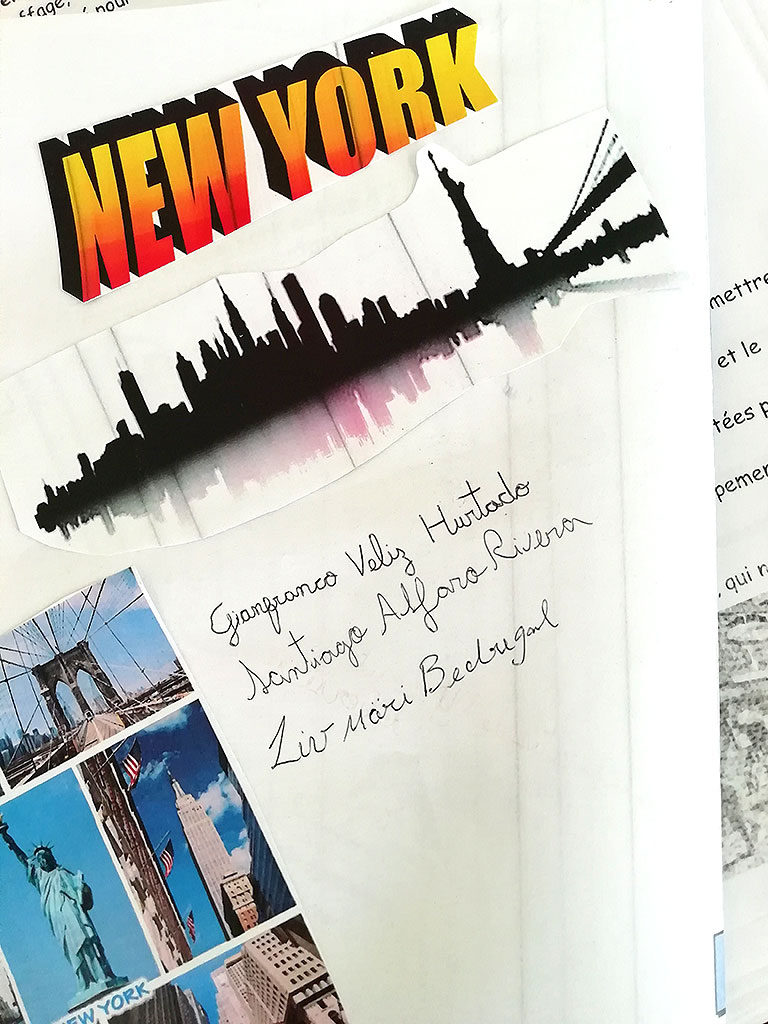 ffage,
nour
NEW YORK
Gianfranco Veliz Hurtado
Santiago Alfaro Rivera
Liv Mari Bedrugal
NEW YORK
mettre
et le
tées p
pemen
, qui n